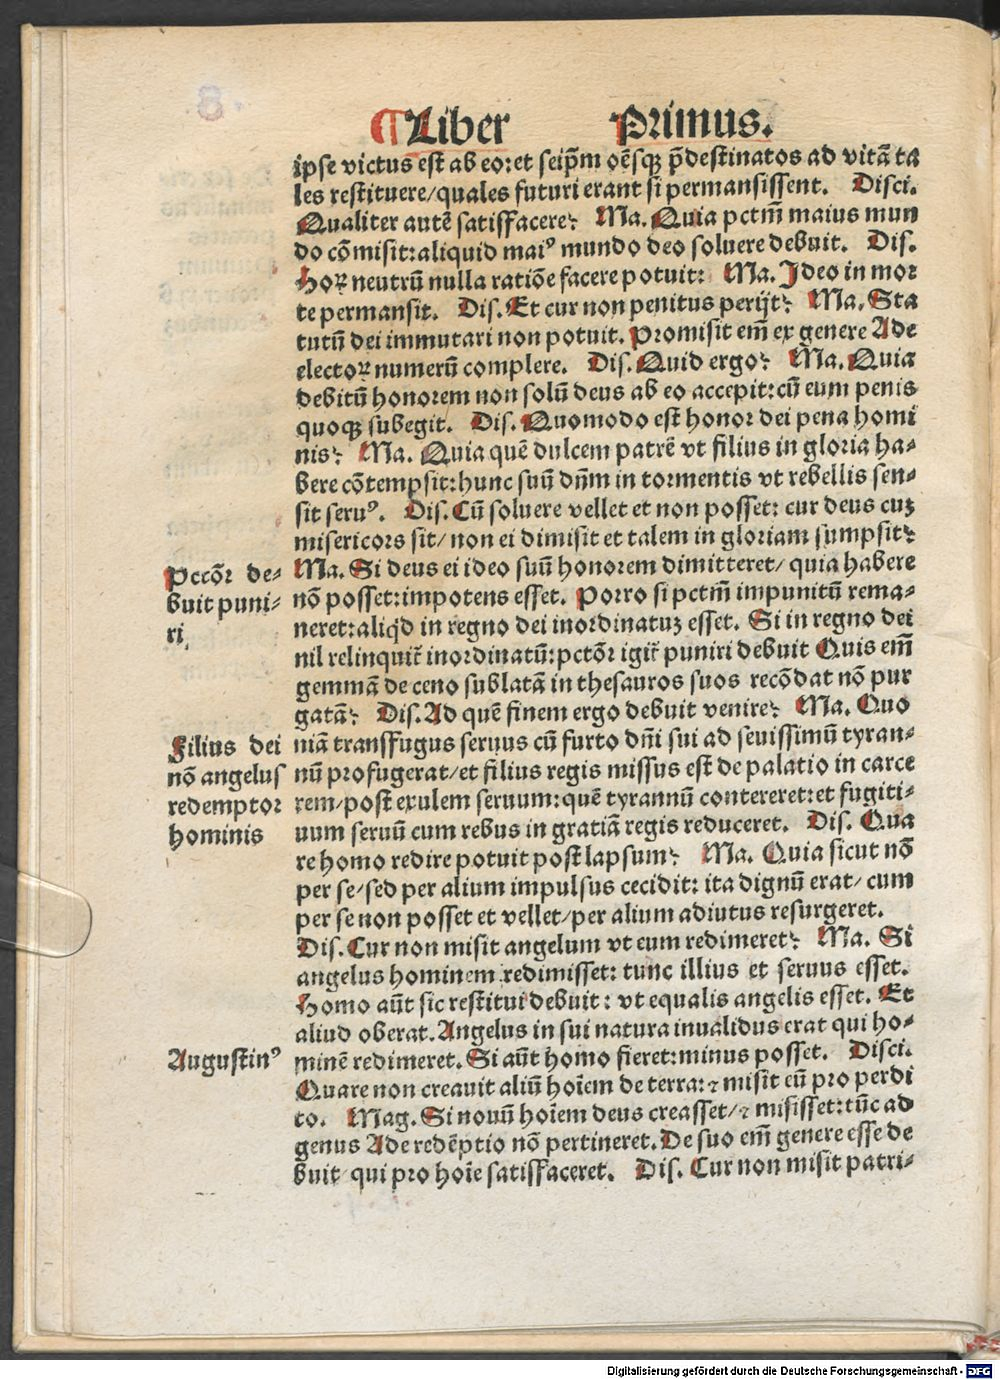 ¶Liber Primus.
ipse victus est ab eo: et seip̄m oēsqꝫ p̄destinatos ad vitā ta
les restituere/ quales futuri erant si permansissent. Disci.
Qualiter autē satisfacere? Ma. Quia pctm̄ maius mun
do cōmisit: aliquid maiꝰ mundo deo soluere debuit. Dis.
Hoꝝ neutrū nulla ratiōe facere potuit? Ma. Ideo in mor
te permansit. Dis. Et cur non penitus perijt? Ma. Sta
tutū dei immutari non potuit. Promisit em̄ ex genere Ade
electoꝝ numerū complere. Dis. Quid ergo? Ma. Quia
debitū honorem non solū deus ab eo accepit: cū eum penis
quoqꝫ subegit. Dis. Quomodo est honor dei pena homi
nis? Ma. Quia quē dulcem patrē vt filius in gloria ha⸗
bere cōtempsit: hunc suū dn̄m in tormentis vt rebellis sen⸗
sit seruꝰ. Dis. Cū soluere vellet et non posset: cur deus cuꝫ
misericors sit/ non ei dimisit et talem in gloriam sumpsit?
Ma. Si deus ei ideo suū honorem dimitteret/ quia habere
nō posset: impotens esset. Porro si pctm̄ impunitū rema⸗
neret: aliqd̓ in regno dei inordinatuꝫ esset. Si in regno dei
nil relinquit̄ inordinatū: pctōr igit̄ puniri debuit Quis em̄
gemmā de ceno sublatā in thesauros suos recōdat nō pur
gatā? Dis. Ad quē finem ergo debuit venire? Ma. Quo
niā transfugus seruus cū furto dn̄i sui ad seuissimū tyran⸗
nū profugerat/ et filius regis missus est de palatio in carce
rem/ post exulem seruum: quē tyrannū contereret: et fugiti⸗
uum seruū cum rebus in gratiā regis reduceret. Dis. Qua
re homo redire potuit post lapsum? Ma. Quia sicut nō
per se/ sed per alium impulsus cecidit: ita dignū erat/ cum
per se non posset et vellet/ per alium adiutus resurgeret.
Dis. Cur non misit angelum vt eum redimeret? Ma. Si
angelus hominem redimisset: tunc illius et seruus esset.
Homo aūt sic restitui debuit: vt equalis angelis esset. Et
aliud oberat. Angelus in sui natura inualidus erat qui ho⸗
minē redimeret. Si aūt homo fieret: minus posset. Disci.
Quare non creauit aliū hoīem de terra: ⁊ misit eū pro perdi
to. Mag. Si nouū hoīem deus creasset/ ⁊ misisset: tūc ad
genus Ade redēptio nō pertineret. De suo em̄ genere esse de
buit/ qui pro hoīe satisfaceret. Dis. Cur non misit patri⸗
Pccōr de⸗
buit puni⸗
ri,
Filius dei
nō angelus
redemptor
hominis
Augustinꝰ
Digitalisierung gefördert durch die Deutsche Forschungsgemeinschaft - DFG